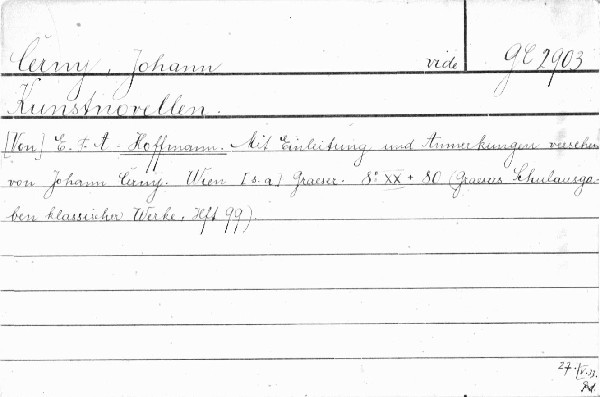 Černy, Johann vide GE 2903
Kunstnovellen.
[Von] E. T. A. Hoffmann. Mit Einleitung und Anmerkungen versehen
von Johann Černy. Wien [s. a.] Graeser. 8° XX + 80 (Graesers Schulausga-
ben klassischer Werke. Hft 99).
27.